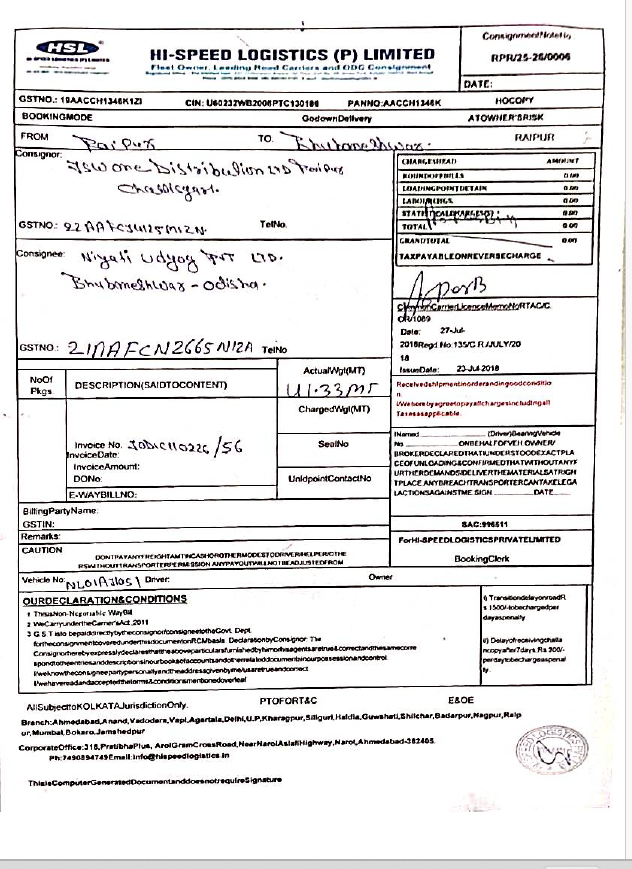 ConsignmentNoteNo
HSL
HI-SPEED LOGISTICS (P) LIMITED
Fleet Owner, Leading Road Carriers and ODC Consignment
RPR/25-26/0006
DATE:
GSTNO.: 19AACCH1346K1ZI CIN: U60232WB2006PTC130196 PANNO:AACCH1346K HOCOPY
BOOKINGMODE GodownDelivery ATOWNER'SRISK
FROM Raipur TO. Bhubaneshwar. RAIPUR
Consignor: JSW one Distribution LTD Raipur
Chattisgarh.
CHARGESHEAD AMOUNT
ROUNDOFFBILLS 0.00
LOADINGPOINTDETAIN 0.00
LABOURCHGS 0.00
STATISTICALCHARGES 0.00
TOTAL 0.00
GRANDTOTAL 0.00
TAXPAYABLEONREVERSECHARGE
GSTNO.: TelNo.
Consignee: Niyati Udyog PVT LTD.
Bhubaneshwar - odisha.
CommonCarrierLicenceMemoNoRTAC/C
OR/1089
Date: 27-Jul-
2018Regd.No.135/C.R./JULY/20
18
IssueDate: 23-Jul-2018
GSTNO.: 21AAFCN2665N1ZA TelNo
NoOf
Pkgs.
DESCRIPTION(SAIDTOCONTENT)
ActualWgt(MT)
41.33MT
ChargedWgt(MT)
SealNo
UnloadpointContactNo
Receivedshipmentinorderandingoodconditio
n.
I/Weherebyagreetopayallchargesincludingall
Taxesasapplicable.
Invoice No. /56
InvoiceDate:
InvoiceAmount:
DONo:
E-WAYBILLNO:
INamed (Driver)BearingVehicle
No ONBEHALFOFVEH OWNER/
BROKERDECLAREDTHATIUNDERSTOODEXACTPLA
CEOFUNLOADING&CONFIRMEDTHATWITHOUTANYF
URTHERDEMANDSIDELIVERTHEMATERIALSATRIGH
TPLACE.ANYBREACHTRANSPORTERCANTAKELEGA
LACTIONSAGAINSTME SIGN DATE
BillingPartyName:
GSTIN:
SAC:996511
Remarks:
ForHI-SPEEDLOGISTICSPRIVATELIMITED
CAUTION
DONTPAYANYFREIGHTAMTINCASHOROTHERMODESTODRIVER/HELPER/OTHE
RSWITHOUTTRANSPORTERPERMISSION ANYPAYOUTWILLNOTBEADJUSTEDFROM
BookingClerk
Vehicle No: Driver: Owner
OURDECLARATION&CONDITIONS
1 ThisisNon-Negotiable WayBill
2 WeCarryundertheCarrier'sAct ,2011
3 G S T isto bepaiddirectlybytheconsignor/consigneetotheGovt. Dept.
fortheconsignmentcoveredunderthisdocumentonRCMbasis. DeclarationbyConsignor: The
Consignorherebyexpresslydeclaresthattheaboveparticularsfurnishedbyhimorhisagentsaretrue&correctandthesamecorre
spondtotheentriesanddescriptionsinourbooksofaccountsandotherrelateddocumentinourpossessionandcontrol.
I/weknowtheconsigneepartypersonallyandtheaddressgivenbyme/usaretrueandcorrect
I/wehavereadandacceptedtheterms&conditionsmentionedoverleaf
i) TransitiondelayonroadR
s 1500/-tobechargedper
dayaspenalty
ii) Delayofreceivingchalla
ncopyafter7days,Rs.200/-
perdaytobechargeaspenal
ty.
AllSubjecttoKOLKATAJurisdictionOnly. PTOFORT&C E&OE
Branch:Ahmedabad,Anand,Vadodara,Vapi,Agartala,Delhi,U.P,Kharagpur,Siliguri,Haldia,Guwahati,Shilchar,Badarpur,Nagpur,Raip
ur,Mumbai,Bokaro,Jamshedpur
CorporateOffice:316,PratibhaPlus, ArolGramCrossRoad,NearNarolAslaliHighway,Narol,Ahmedabad-382405.
Ph:7490894749Email:info@hispeedlogistics.in
ThisisComputerGeneratedDocumentanddoesnotrequireSignature